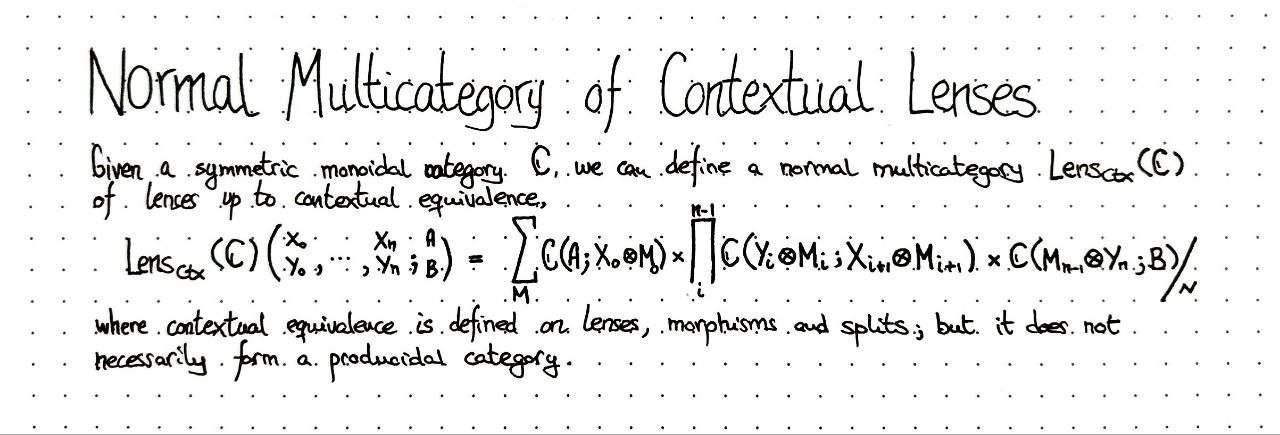 Normal Multicategory of Contextual Lenses
Given a symmetric monoidal category ℂ, we can define a normal multicategory Lens_Ctx(ℂ)
of lenses up to contextual equivalence,
Lens_Ctx(ℂ)(X₀ Y₀, ⋯, Xₙ Yₙ; A B) = ∑_M ℂ(A; X₀⊗M₀) × ∏_i^{n-1} ℂ(Yᵢ⊗Mᵢ; Xᵢ₊₁⊗Mᵢ₊₁) × ℂ(Mₙ₋₁⊗Yₙ; B)/~
where contextual equivalence is defined on lenses, morphisms and splits; but it does not
necessarily form a produoidal category.